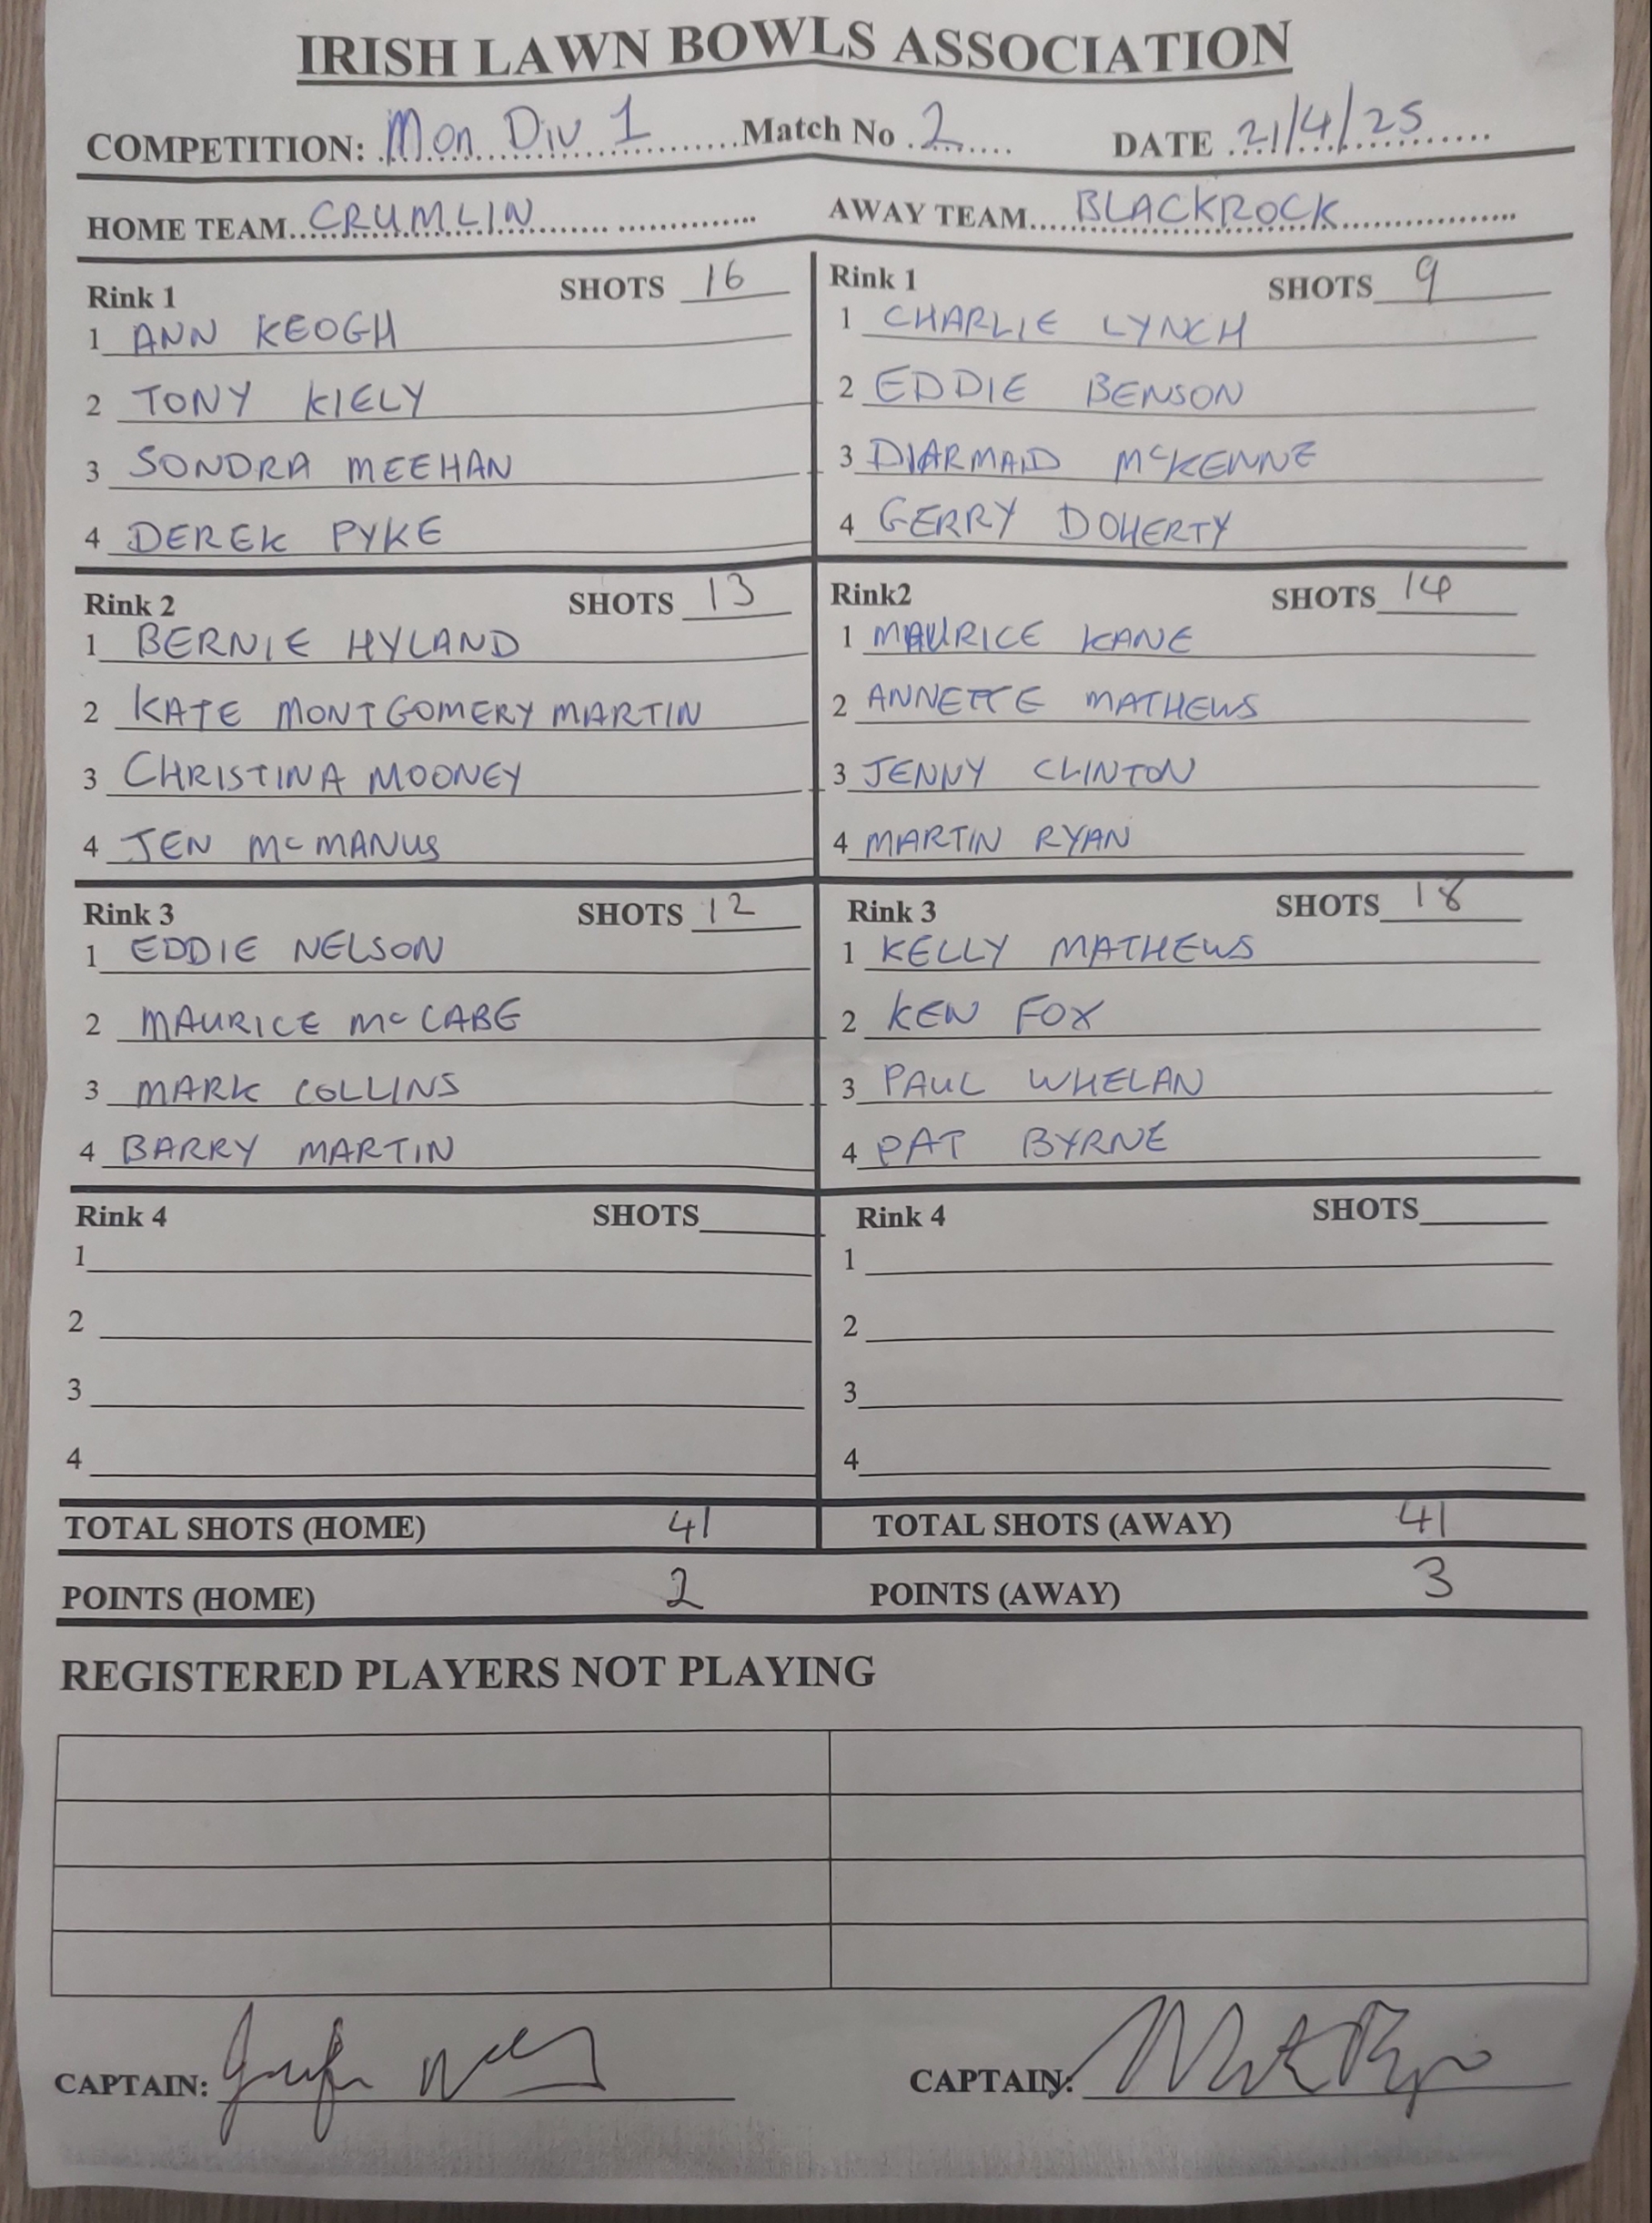 IRISH LAWN BOWLS ASSOCIATION
COMPETITION: Mon Div 1 Match No 2 DATE 21/4/25
HOME TEAM CRUMLIN AWAY TEAM BLACKROCK
Rink 1 SHOTS 16
1 ANN KEOGH
2 TONY KIELY
3 SONDRA MEEHAN
4 DEREK PYKE
Rink 1 SHOTS 9
1 CHARLIE LYNCH
2 EDDIE BENSON
3 DIARMAID McKENNE
4 GERRY DOHERTY
Rink 2 SHOTS 13
1 BERNIE HYLAND
2 KATE MONTGOMERY MARTIN
3 CHRISTINA MOONEY
4 JEN McMANUS
Rink2 SHOTS 14
1 MAURICE KANE
2 ANNETTE MATHEWS
3 JENNY CLINTON
4 MARTIN RYAN
Rink 3 SHOTS 12
1 EDDIE NELSON
2 MAURICE McCABE
3 MARK COLLINS
4 BARRY MARTIN
Rink 3 SHOTS 18
1 KELLY MATHEWS
2 KEN FOX
3 PAUL WHELAN
4 PAT BYRNE
Rink 4 SHOTS
1
2
3
4
Rink 4 SHOTS
1
2
3
4
TOTAL SHOTS (HOME) 41 TOTAL SHOTS (AWAY) 41
POINTS (HOME) 2 POINTS (AWAY) 3
REGISTERED PLAYERS NOT PLAYING
CAPTAIN: CAPTAIN: